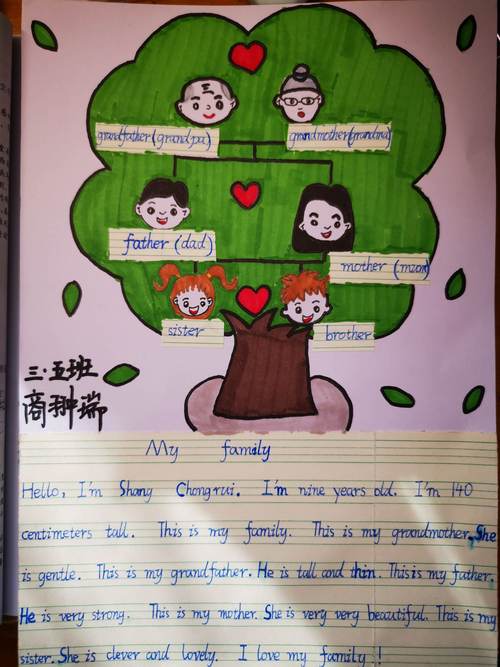 grandfather (grandpa)
grandmother (grandma)
father (dad)
mother (mum)
sister
brother
三·五班
商翀瑞
My family
Hello, I'm Shang Chongrui. I'm nine years old. I'm 140
centimeters tall. This is my family. This is my grandmother. She
is gentle. This is my grandfather. He is tall and thin. This is my father.
He is very strong. This is my mother. She is very very beautiful. This is my
sister. She is clever and lovely. I love my family!